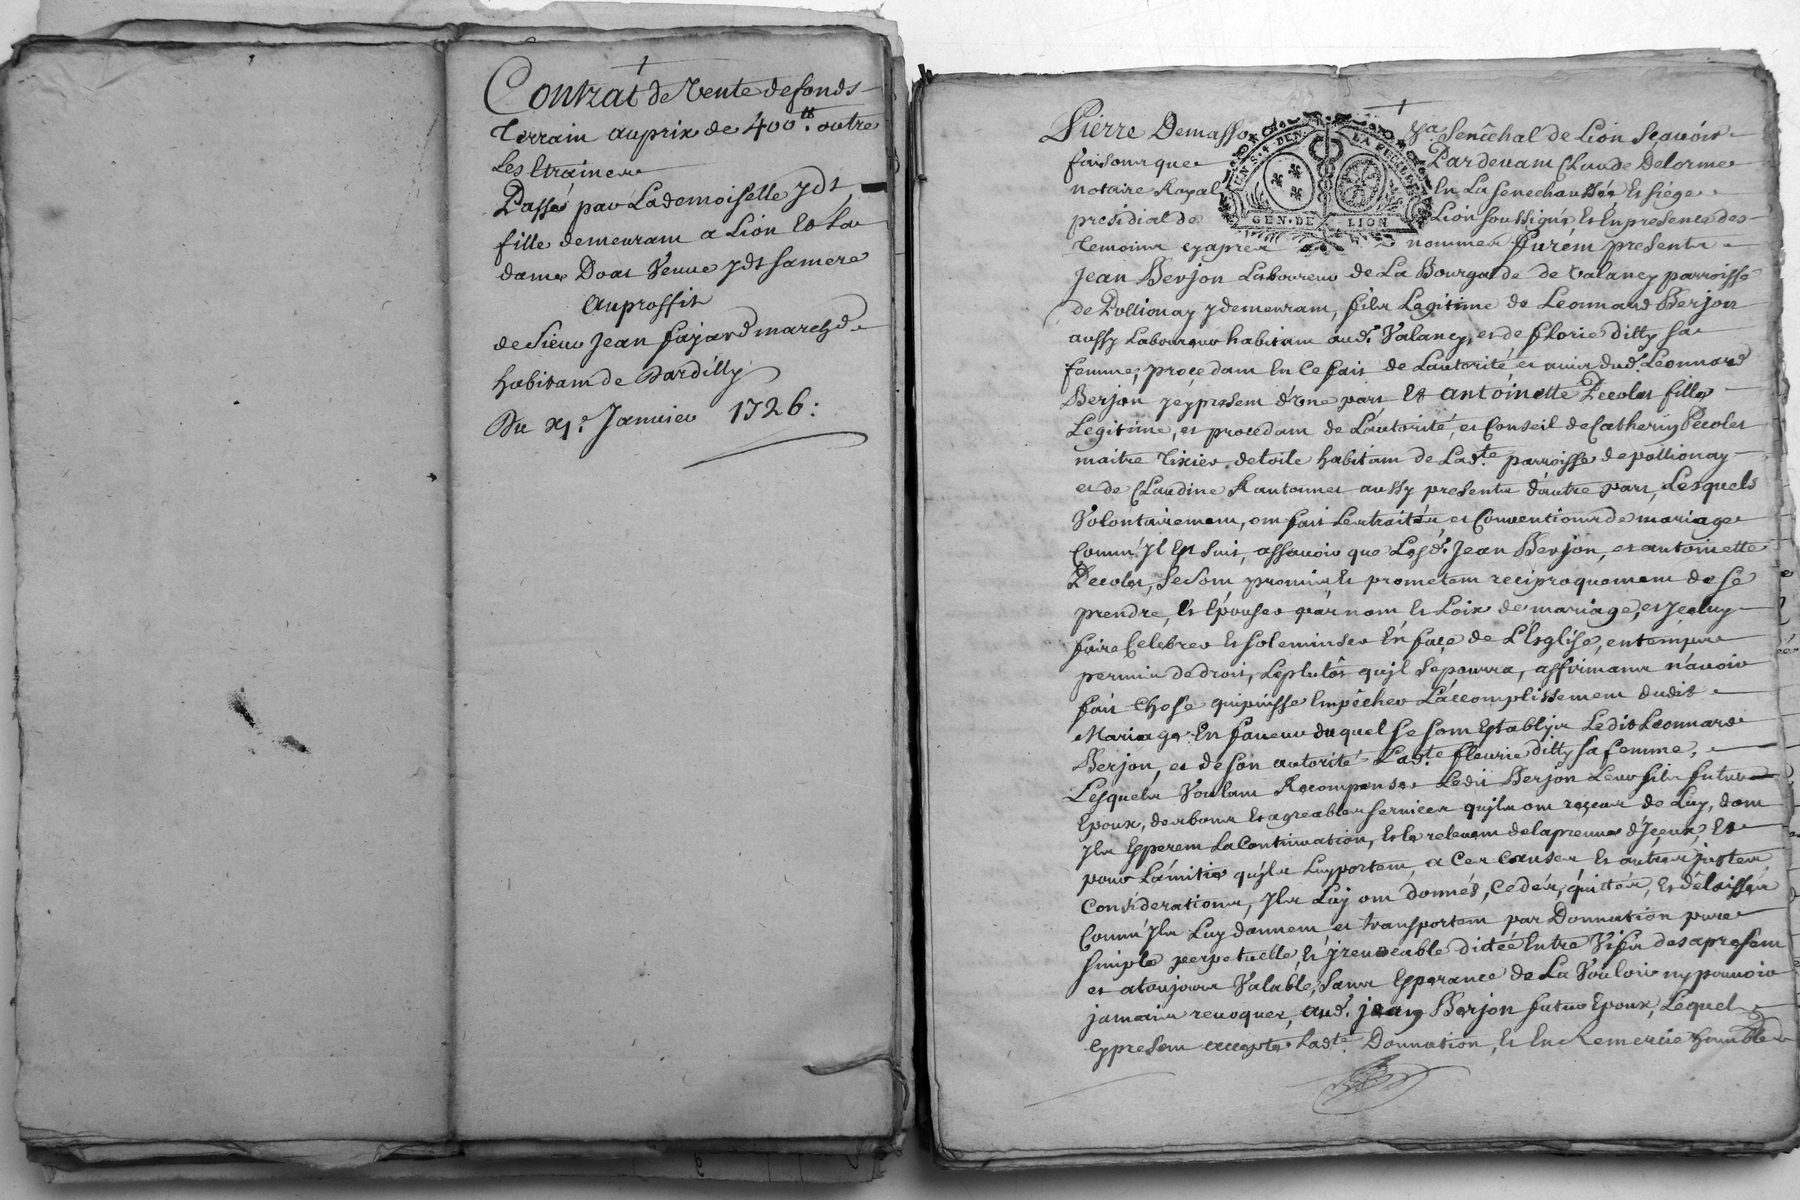 Contrat de Vente de fonds
Terrain au prix de 400ᵗᵗ. outre
Les Etraines
Passé par Lademoiselle yds
fille demeurant a Lion Et La
dame Doat Veuve yds sa mere
au proffit
de Sieur Jean fayard march.d
habitant de Dardilly
Du xj.e Janvier 1726:
Pierre Demasso
Senéchal de Lion Sçavoir
faisons que Pardevant Claude Delorme
notaire Royal En La Senechaussée Et Siége
presidial de Lion soussigné Et En presence des
Temoins cy apres nommés furent presents
GEN. DE LION
Jean Berjon Laboureur de La Bourgade de Valancy parroisse
de Pollionay y demeurant, fils Legitime de Leonnard Berjon
aussy Laboureur habitant aud.t Valancy, et de florie ditty sa
femme, procedant En Ce fait de Lautorité et avis dud.t Leonnard
Berjon, jcy present d'une part Et antoinette Decoles fille
Legitime, et procedant de L'autorité, et Conseil de Catherin Decoles
maitre Tixier de toile habitant de Lad.te parroisse de pollionay
et de Claudine Rantonnet aussy presents d'autre part, Lesquels
Volontairement, ont fait Les traités et Conventions de mariage
Comm'Jl En Suit, assavoir que Lesd.ts Jean Berjon, et antoinette
Decoles, Se Sont promis Et prometent reciproquement de Se
prendre, Et Epouser par nom Et Loix de mariage, et jceluy
faire Celebrer Et solemniser En face de L'Esglise, en temps
permis de droit, Le plutôt qu'jl Se pourra, affirmants n'avoir
fait Chose qui puisse Empêcher L'accomplissement dudit
Mariage: En faveur duquel se sont Establys Ledit Leonnard
Berjon, et de son autorité Lad.te fleurie ditty sa femme,
Lesquels Voulant Recompenser Ledit Berjon Leur fils futur
Epoux, des bons Et agreables services qu'jls ont reçeus de Luy, dont
Jls Esperent La Continuation, Et le relevent de la preuve d'Jceux, Et
pour L'amitié qu'jls Luy portent, a Ces Causes Et autres justes
Considerations, Jls Luy ont donnés, Cedés, quittés, Et délaissés
Comm'Jls Luy donnent et transportent par Donnation pure
simple perpetuelle, Et jrrevocable dictée Entre Vifs des a present
et a toujours Valable, Sans Esperance de La Vouloir ny pouvoir
jamais revoquer, aud.t jean Berjon futur Epoux, Lequel
cy present accepte Lad.te Donnation, Et En Remercie humble